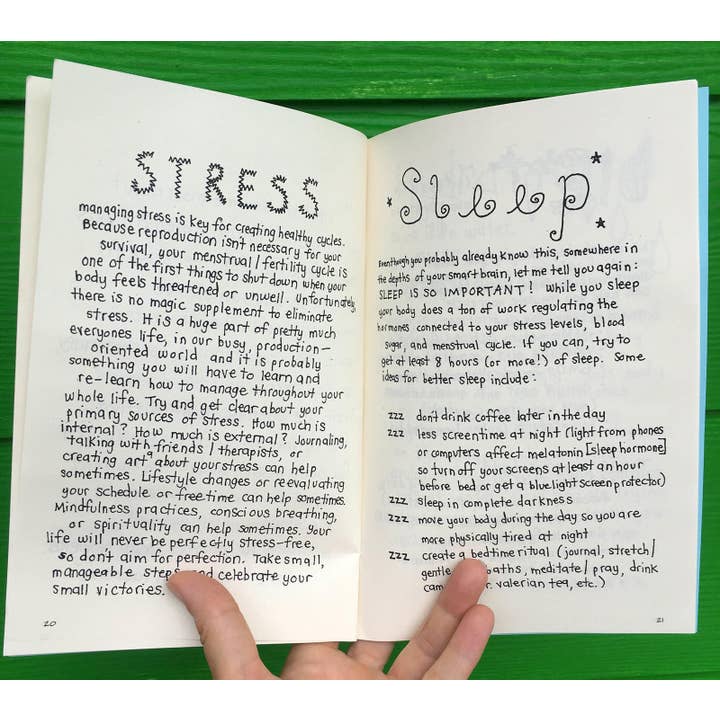 STRESS
managing stress is key for creating healthy cycles.
Because reproduction isn't necessary for your
survival, your menstrual/fertility cycle is
one of the first things to shut down when your
body feels threatened or unwell. Unfortunately,
there is no magic supplement to eliminate
stress. It is a huge part of pretty much
everyones life, in our busy, production-
oriented world and it is probably
something you will have to learn and
re-learn how to manage throughout your
whole life. Try and get clear about your
primary sources of stress. How much is
internal? How much is external? Journaling,
talking with friends/therapists, or
creating art about your stress can help
sometimes. Lifestyle changes or reevaluating
your schedule or free-time can help sometimes.
Mindfulness practices, conscious breathing,
or spirituality can help sometimes. Your
life will never be perfectly stress-free,
so don't aim for perfection. Take small,
manageable steps and celebrate your
small victories.
20
Sleep
Eventhough you probably already know this, somewhere in
the depths of your smart brain, let me tell you again:
SLEEP IS SO IMPORTANT! While you sleep
your body does a ton of work regulating the
hormones connected to your stress levels, blood
sugar, and menstrual cycle. If you can, try to
get at least 8 hours (or more!) of sleep. Some
ideas for better sleep include:
zzz don't drink coffee later in the day
zzz less screentime at night (light from phones
or computers affect melatonin [sleep hormone]
so turn off your screens at least an hour
before bed or get a blue light screen protector)
zzz sleep in complete darkness
zzz move your body during the day so you are
more physically tired at night
zzz create a bedtime ritual (journal, stretch/
gentle baths, meditate/pray, drink
valerian tea, etc.)
21